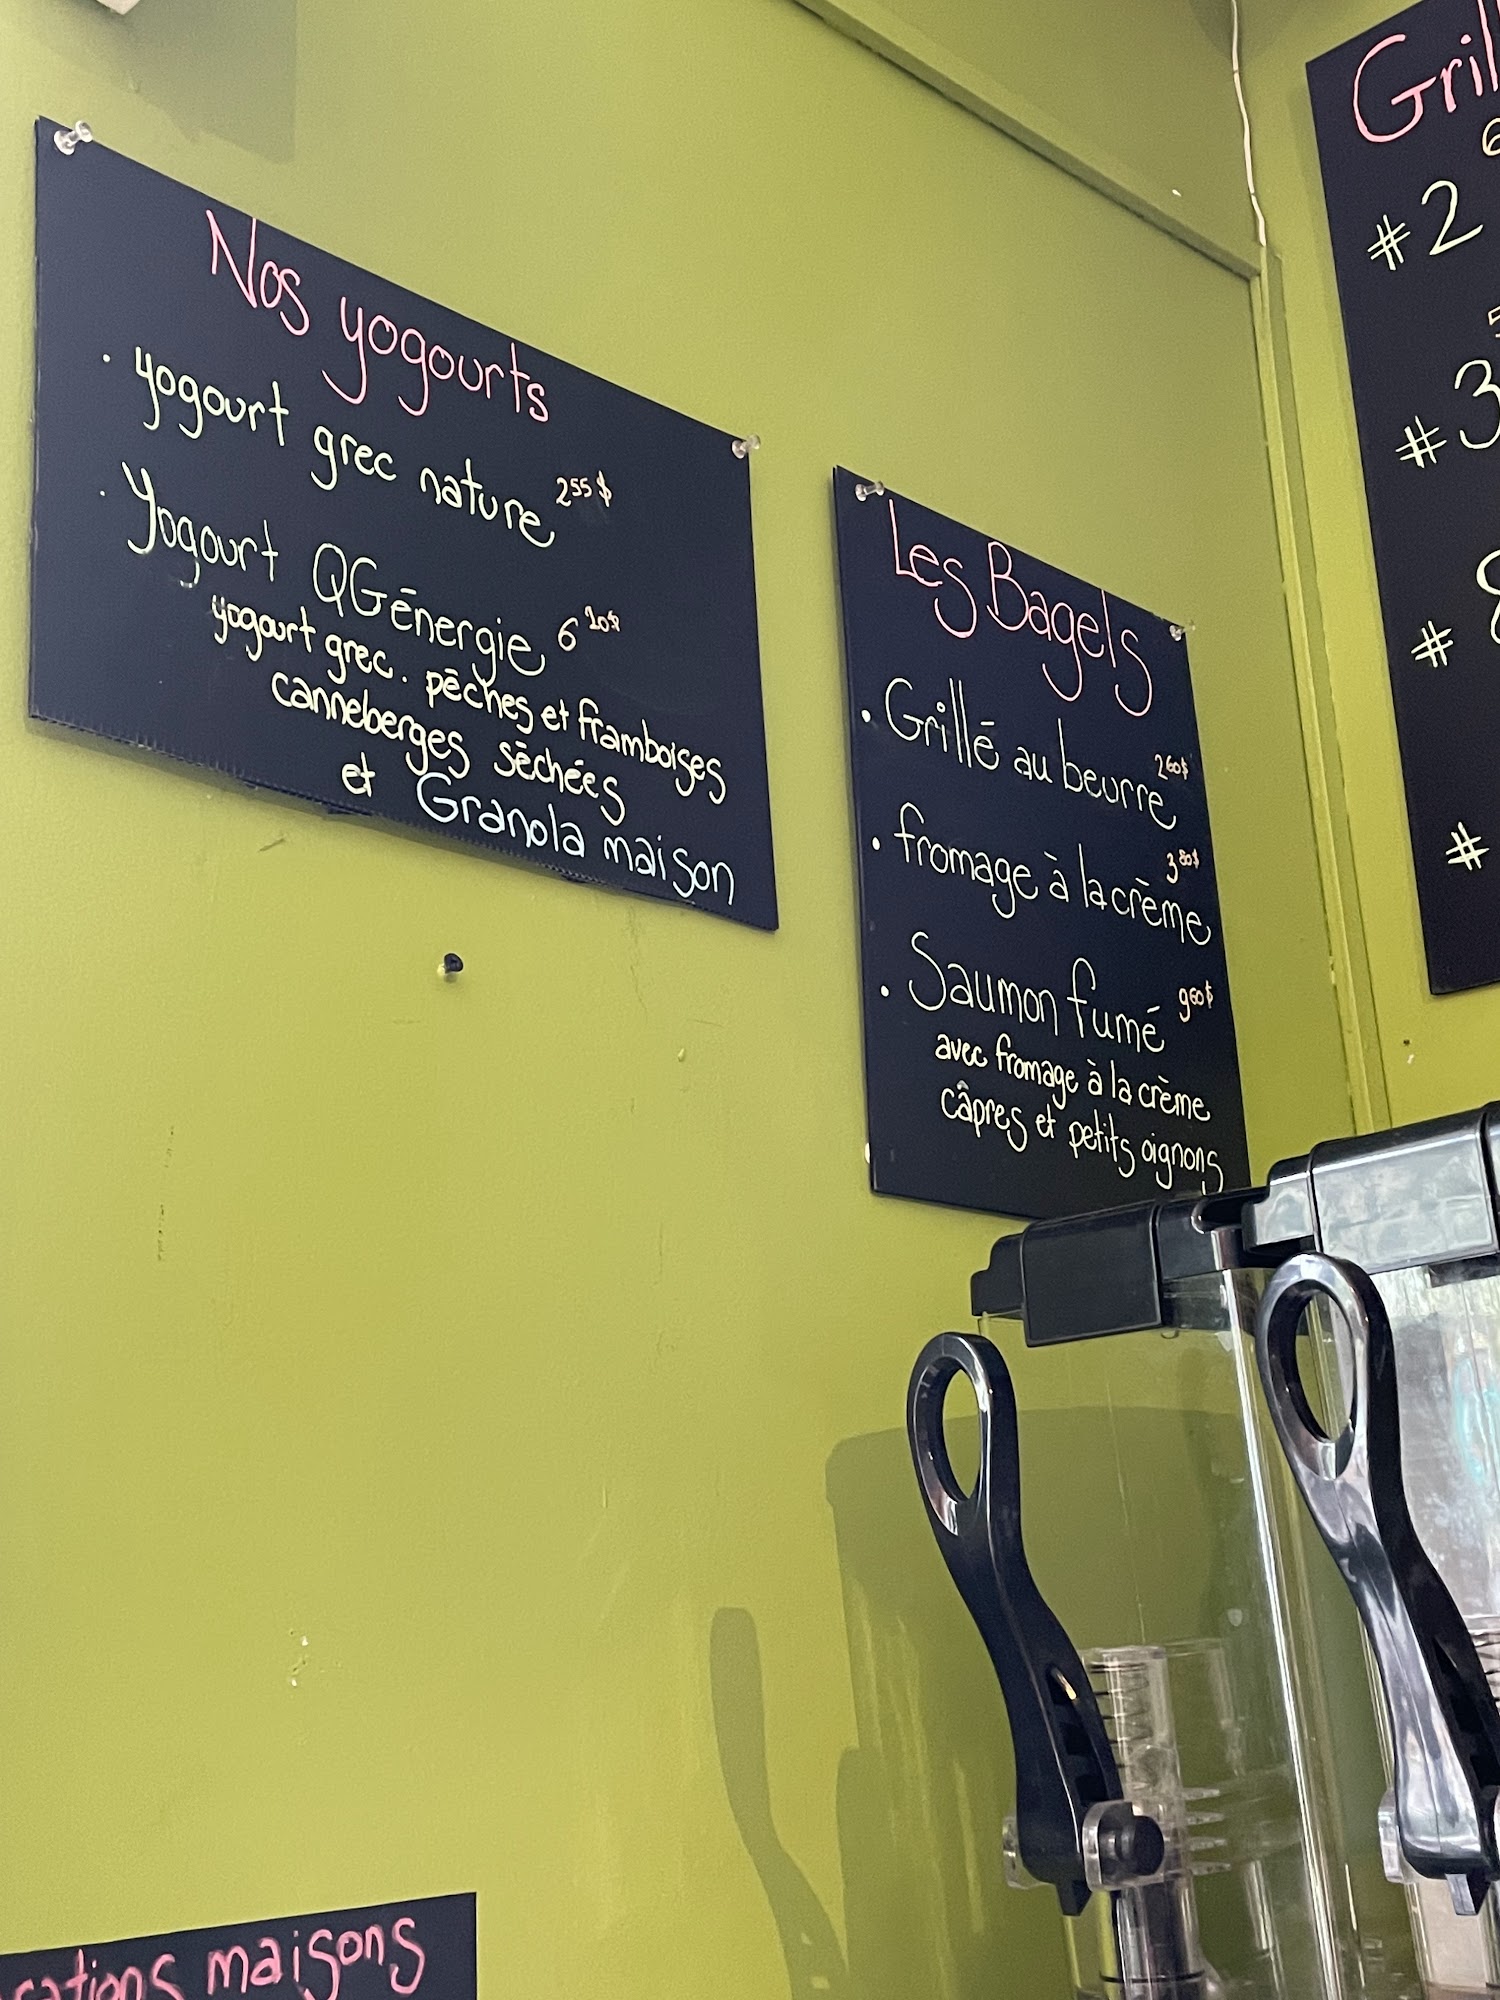 Nos yogourts
· yogourt grec nature 2 55 $
· Yogourt QGénergie 6 10$
yogourt grec. pêches et framboises
canneberges séchées
et Granola maison
Les Bagels
· Grillé au beurre 2 60$
· fromage à la crème 3 80$
· Saumon fumé 9 60$
avec fromage à la crème
câpres et petits oignons
#2
#3
#
#
maisons